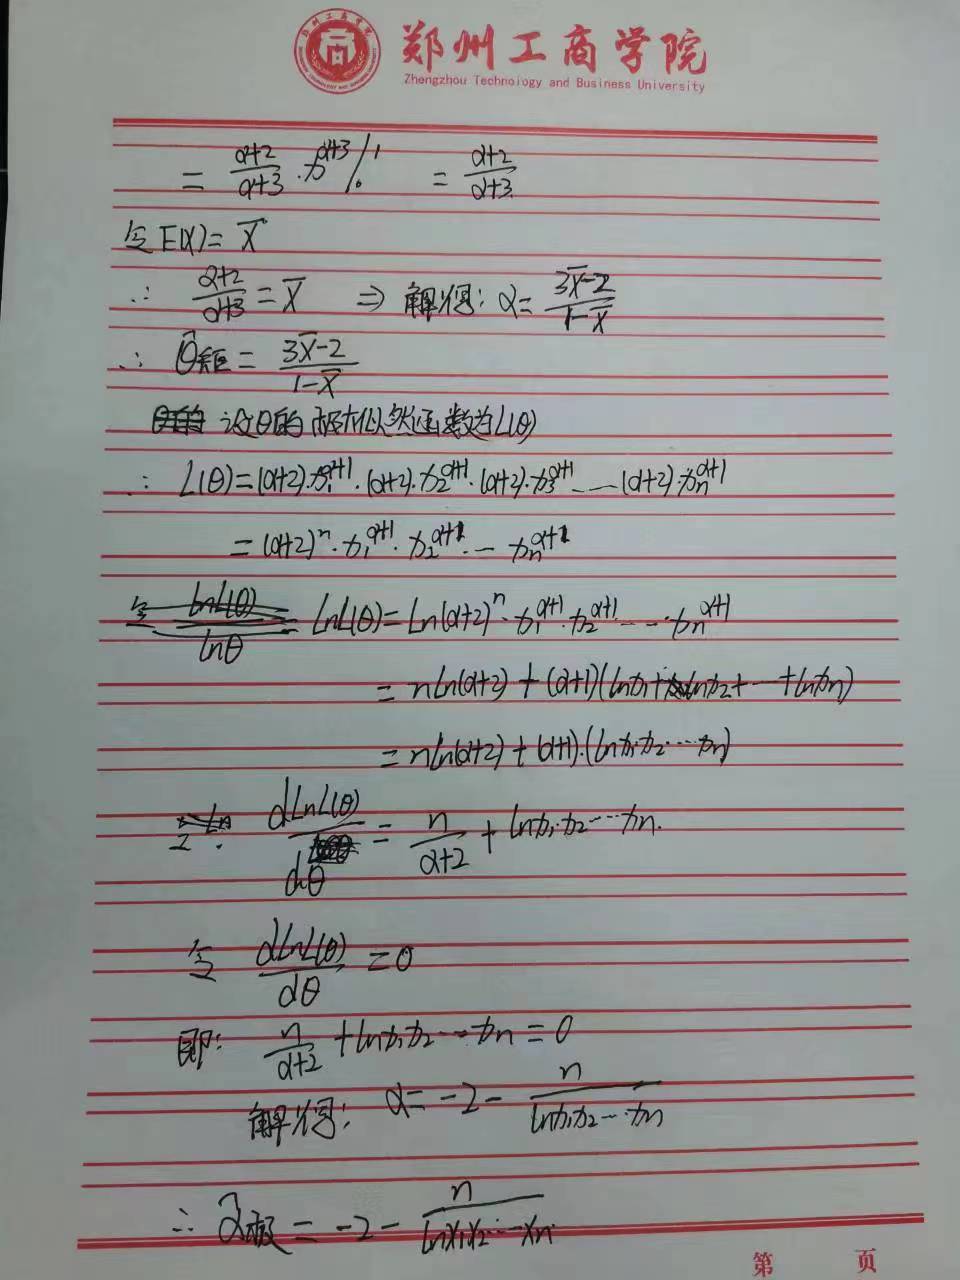 郑州工商学院
Zhengzhou Technology and Business University
= α+2/α+3 · x^α+3 |₀¹ = α+2/α+3
令E(X)= X̄
∴ α+2/α+3 = X̄ ⇒ 解得: α= 3X̄-2/1-X̄
∴ θ̂矩= 3X̄-2/1-X̄
设θ的极大似然函数为L(θ)
∴ L(θ)=(α+2)·x₁^α+1·(α+2)·x₂^α+1·(α+2)·x₃^α+1……(α+2)·xₙ^α+1
=(α+2)ⁿ·x₁^α+1·x₂^α+1·…xₙ^α+1
令 lnL(θ)/lnθ LnL(θ)=Ln(α+2)ⁿ·x₁^α+1·x₂^α+1·…·xₙ^α+1
= nLn(α+2)+(α+1)(lnx₁+lnx₂+…+lnxₙ)
= nLn(α+2)+(α+1)·(lnx₁x₂…xₙ)
dLnL(θ)/dθ = n/α+2 + lnx₁·x₂…xₙ.
令 dLnL(θ)/dθ =0
即: n/α+2 +lnx₁x₂…xₙ=0
解得: α=-2- n/lnx₁x₂…xₙ
∴ α̂极 = -2- n/lnx₁x₂…xₙ
第 页